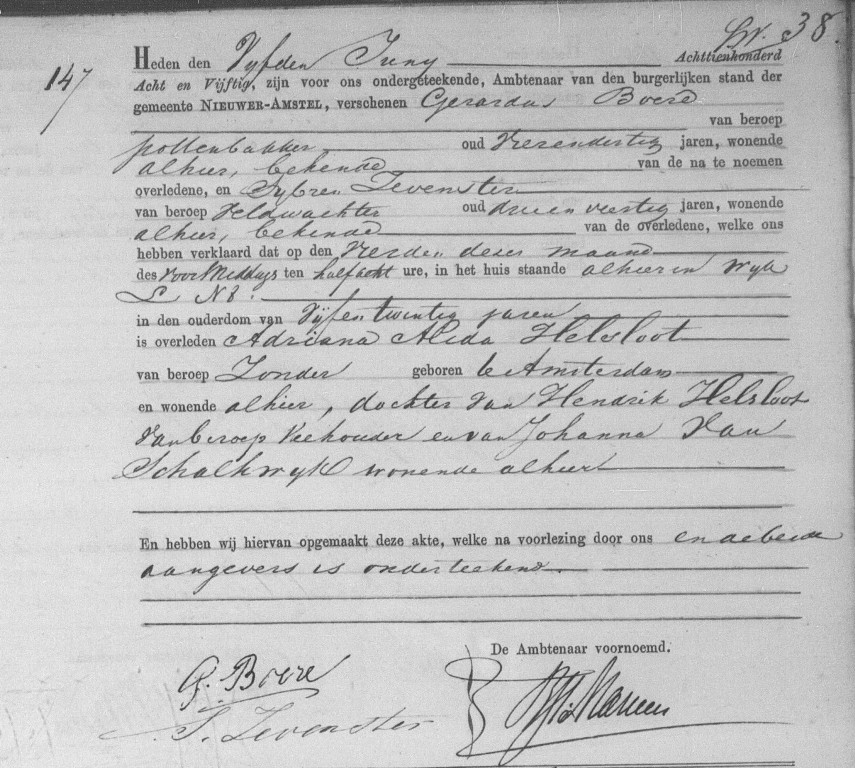 38.
147
Heden den Vyfden Juny Achttienhonderd
Acht en Vijftig, zijn voor ons ondergeteekende, Ambtenaar van den burgerlijken stand der
gemeente NIEUWER-AMSTEL, verschenen Gerardus Boere
van beroep
pottenbakker oud Vierendertig jaren, wonende
alhier, bekende van de na te noemen
overledene, en Sybren Zevenster
van beroep Veldwachter oud drieenveertig jaren, wonende
alhier, bekende van de overledene, welke ons
hebben verklaard dat op den Vierden dezer maand
des VoorMiddags ten halfacht ure, in het huis staande alhier in Wyk
L N8.
in den ouderdom van Vijfentwintig jaren
is overleden Adriana Alida Helsloot
van beroep Zonder geboren te Amsterdam
en wonende alhier, dochter van Hendrik Helsloot
van beroep Veehouder en van Johanna Van
Schalkwyk wonende alhier
En hebben wij hiervan opgemaakt deze akte, welke na voorlezing door ons en de beide
aangevers is onderteekend.
De Ambtenaar voornoemd.
G. Boere
S. Zevenster